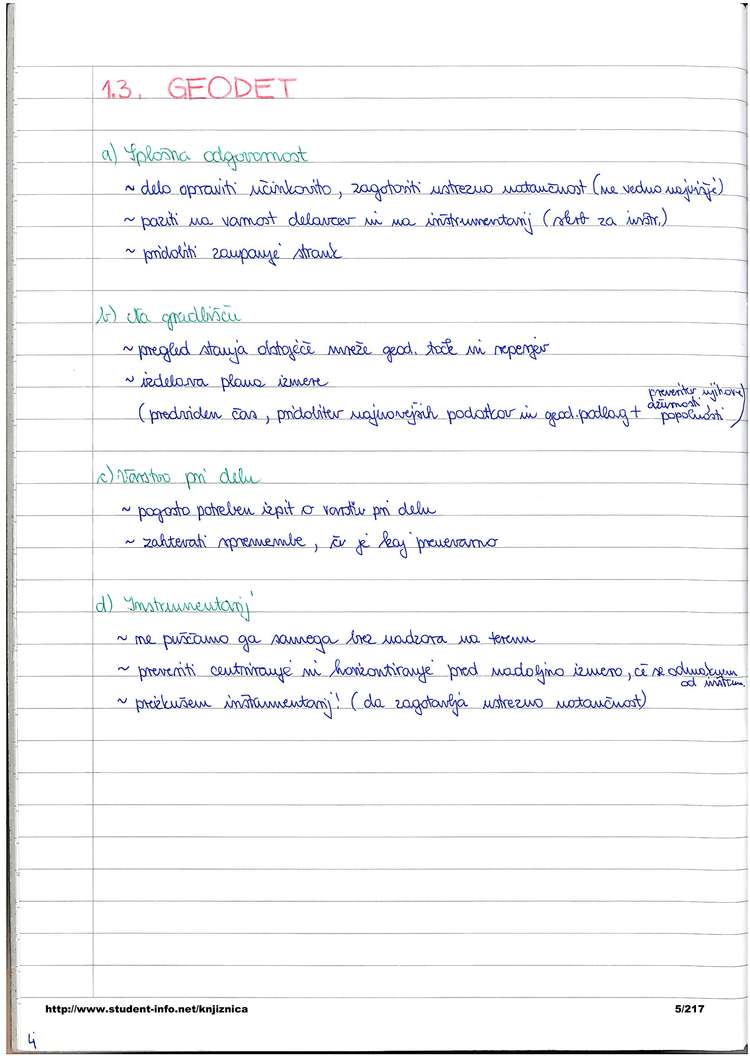 1.3. GEODET
a) Splošna odgovornost
~ delo opraviti učinkovito, zagotoviti ustrezno natančnost (ne vedno najvišje)
~ paziti na varnost delavcev in na inštrumentarij (skrb za inštr.)
~ pridobiti zaupanje strank
b) Na gradbišču
~ pregled stanja obstoječe mreže geod. točk in reperjev
~ izdelava plana izmere
(predviden čas, pridobitev najnovejših podatkov in geod. podlag + preveritev njihove ažurnosti popolnosti)
c) Varstvo pri delu
~ pogosto potreben izpit o varstvu pri delu
~ zahtevati spremembe, če je kaj prenevarno
d) Instrumentarij
~ ne puščamo ga samega brez nadzora na terenu
~ preveriti centriranje in horizontiranje pred nadaljno izmero, če se odmaknem od inštrum.
~ preizkušen inštrumentarij! (da zagotavlja ustrezno natančnost)
http://www.student-info.net/knjiznica 5/217
4